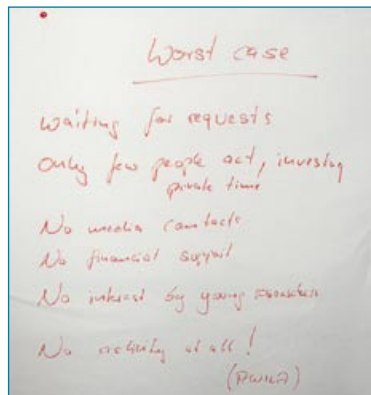 Worst case
waiting for requests
only few people act, investing
private time
No media contacts
No financial support
No interest by young
No activity at all!